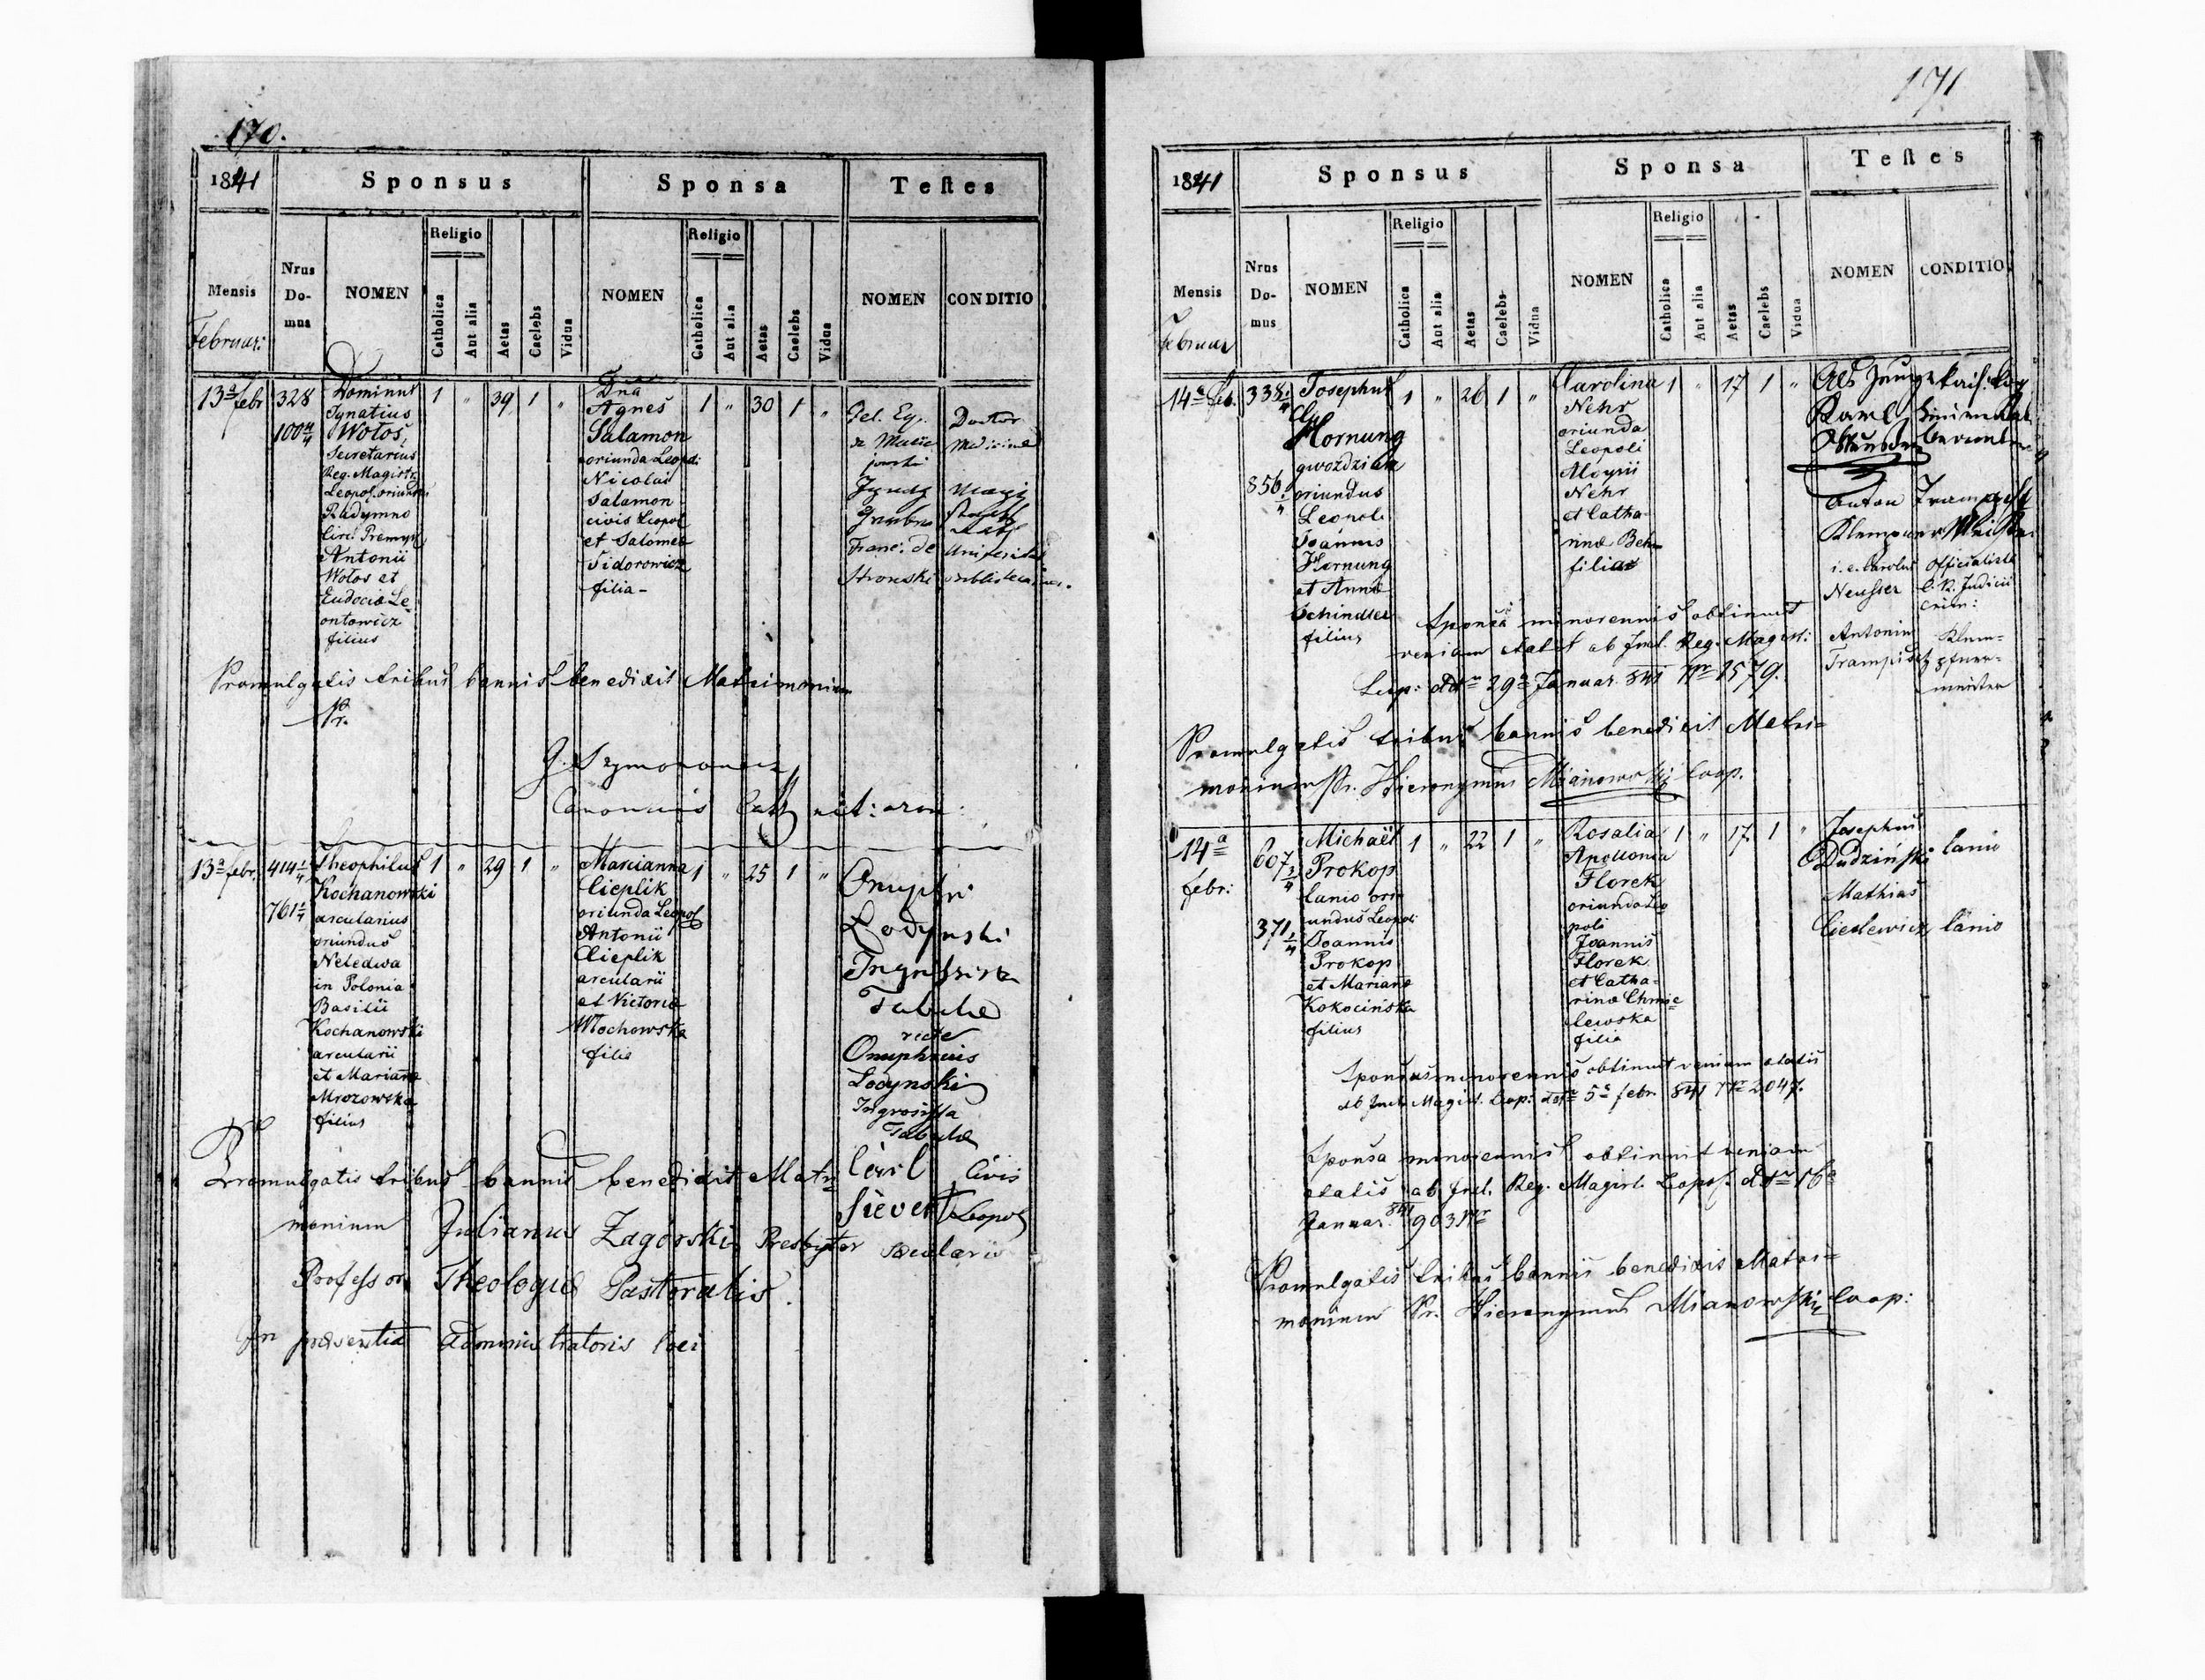 170.
1841
Sponsus
Sponsa
Testes
Religio
Religio
Mensis
Nrus Do-mus
NOMEN
Catholica
Aut alia
Aetas
Caelebs
Vidua
NOMEN
Catholica
Aut alia
Aetas
Caelebs
Vidua
NOMEN
CONDITIO
Februar:
13a febr
328
100 4/4
Dominus
Ignatius
Wołoś,
Secretarius
Reg. Magistr.
Leopol. oriundus
Radymno
Circ: Premysl
Antonii
Wołos et
Eudociæ Le
ontowicz
filius
1 " 39 1 "
Dna
Agnes
Salamon
oriunda Leopoli
Nicolai
Salamon
civis Leopol
et Salomea
Sidorowicz
filia -
1 " 30 1 "
Doctor
Medicinae
Franc: de
Stronski
Promulgatis tribus bannis benedixit Matrimonium
Pr.
J. Szymonowicz
Canonicus Cath rit: arm:
13a febr.
414 1/4
761 1/4
Theophilus
Kochanowski
arcularius
oriundus
Neledwa
in Polonia
Basilii
Kochanowski
arcularii
et Mariana
Mrozowska
filius
1 " 29 1 "
Marianna
Cieplik
oriunda Leopol
Antonii
Cieplik
arcularii
et Victoria
Włochowska
filia
1 " 25 1 "
Onuphri
Łodynski
Ingrossista
Tabulae
recte
Onuphrius
Łodynski
Ingrossista
Tabulæ
Carl
Sievert
Civis
Leopol
Promulgatis tribus bannis benedixit Matri
monium Julianus Zagórski Presbyter sæcularis
Professor Theologiæ Pastoralis.
In præsentia Administratoris loci
171
1841
Sponsus
Sponsa
Testes
Religio
Religio
Mensis
Nrus Do-mus
NOMEN
Catholica
Aut alia
Aetas
Caelebs
Vidua
NOMEN
Catholica
Aut alia
Aetas
Caelebs
Vidua
NOMEN
CONDITIO
Februar
14a feb.
338
856 /4
Josephus
Hornung
oriundus
Leopoli
Joannis
Hornung
et Anna
Schindler
filius
1 " 26 1 "
Carolina
Nehr
oriunda
Leopoli
Aloysii
Nehr
et Catha-
rinæ Behm
filia
1 " 17 1 "
Als Zeuge
Karl
Anton Trampisch
Klempner Meister
i. e. Carolus
Neusser
Officialista
C. R. Judicii
Crim:
Antonin
Trampisch
Klem-
pfner-
meister
Sponsa minorennis obtinuit
veniam ætatis ab Incl. Reg. Magist:
Leop: ddto 29a Januar. 841 Nr 1579.
Promulgatis tribus bannis benedixit Matri=
monium Pr. Hieronymus Mianowski Coop.
14a
febr:
607 2/4
371 1/4
Michaël
Prokop
lanio ori
undus Leopoli
Joannis
Prokop
et Mariana
Kokocińska
filius
1 " 22 1 "
Rosalia
Apollonia
Florek
oriunda Leo
poli
Joannis
Florek
et Catha-
rinæ Chmie
lewska
filia
1 " 17 1 "
Josephus
Dudziński
lanio
Mathias
Ciesłewicz
lanio
Sponsus minorennis obtinuit veniam ætatis
ab Incl. Magist. Leop: ddto 5a febr. 841 Nr 2047.
Sponsa minorennis obtinuit veniam
ætatis ab Incl. Reg. Magist. Leopol. ddto 16a
Januar. 841 903 Nr
Promulgatis tribus bannis benedixit Matri=
monium Pr. Hieronymus Mianowski Coop: